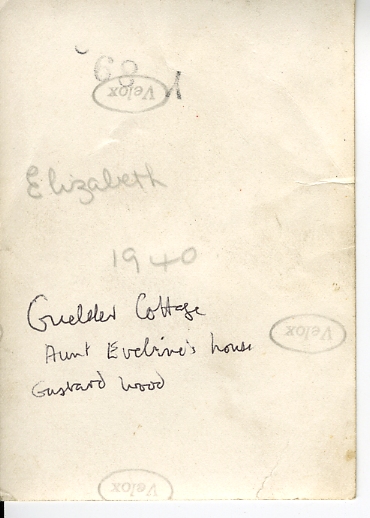 69
Velox
Elizabeth
1940
Guelder Cottage
Aunt Eveline's house
Velox
Gustard Wood
Velox